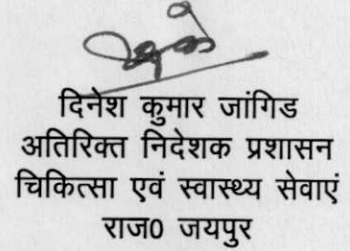 दिनेश कुमार जांगिड
अतिरिक्त निदेशक प्रशासन
चिकित्सा एवं स्वास्थ्य सेवाएं
राज0 जयपुर